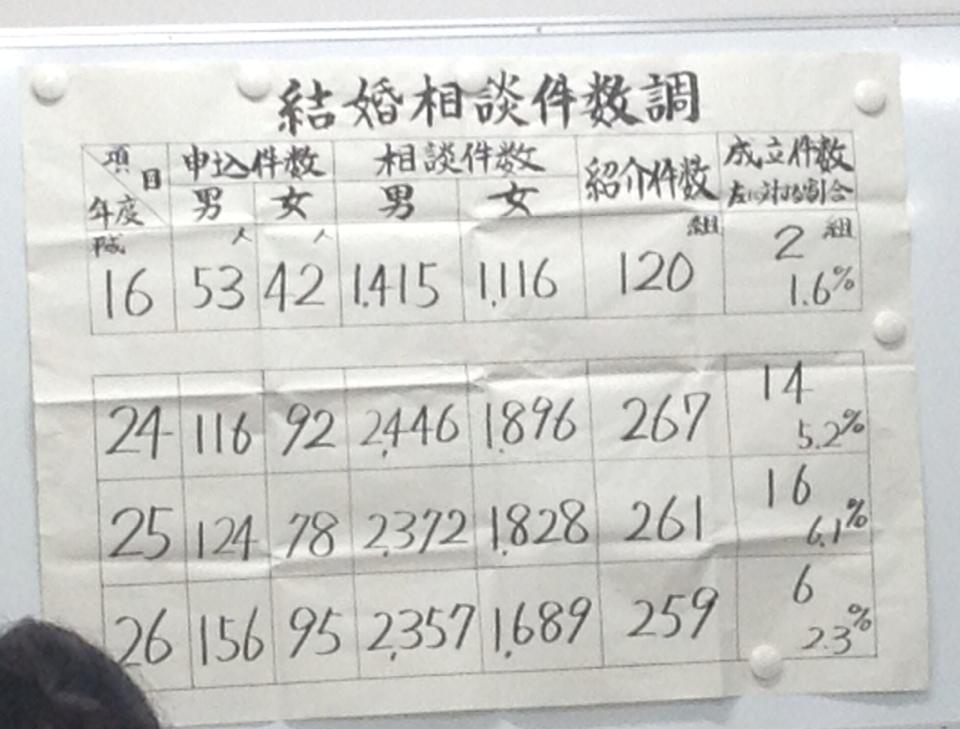 結婚相談件数調
項目 申込件数 相談件数 紹介件数 成立件数
年度 男 女 男 女 左に対する割合
平成 人 人 組 組
16 53 42 1,415 1,116 120 2
1.6%
24 116 92 2,446 1,896 267 14
5.2%
25 124 78 2,372 1,828 261 16
6.1%
26 156 95 2,357 1,689 259 6
2.3%